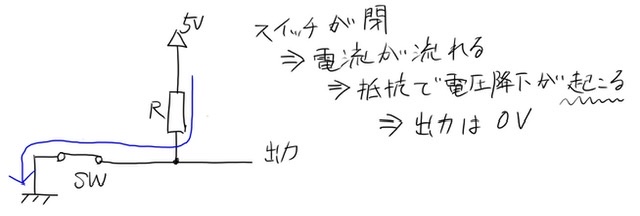 5V
スイッチが閉
⇒ 電流が流れる
⇒ 抵抗で電圧降下が起こる
⇒ 出力は 0V
R
出力
SW